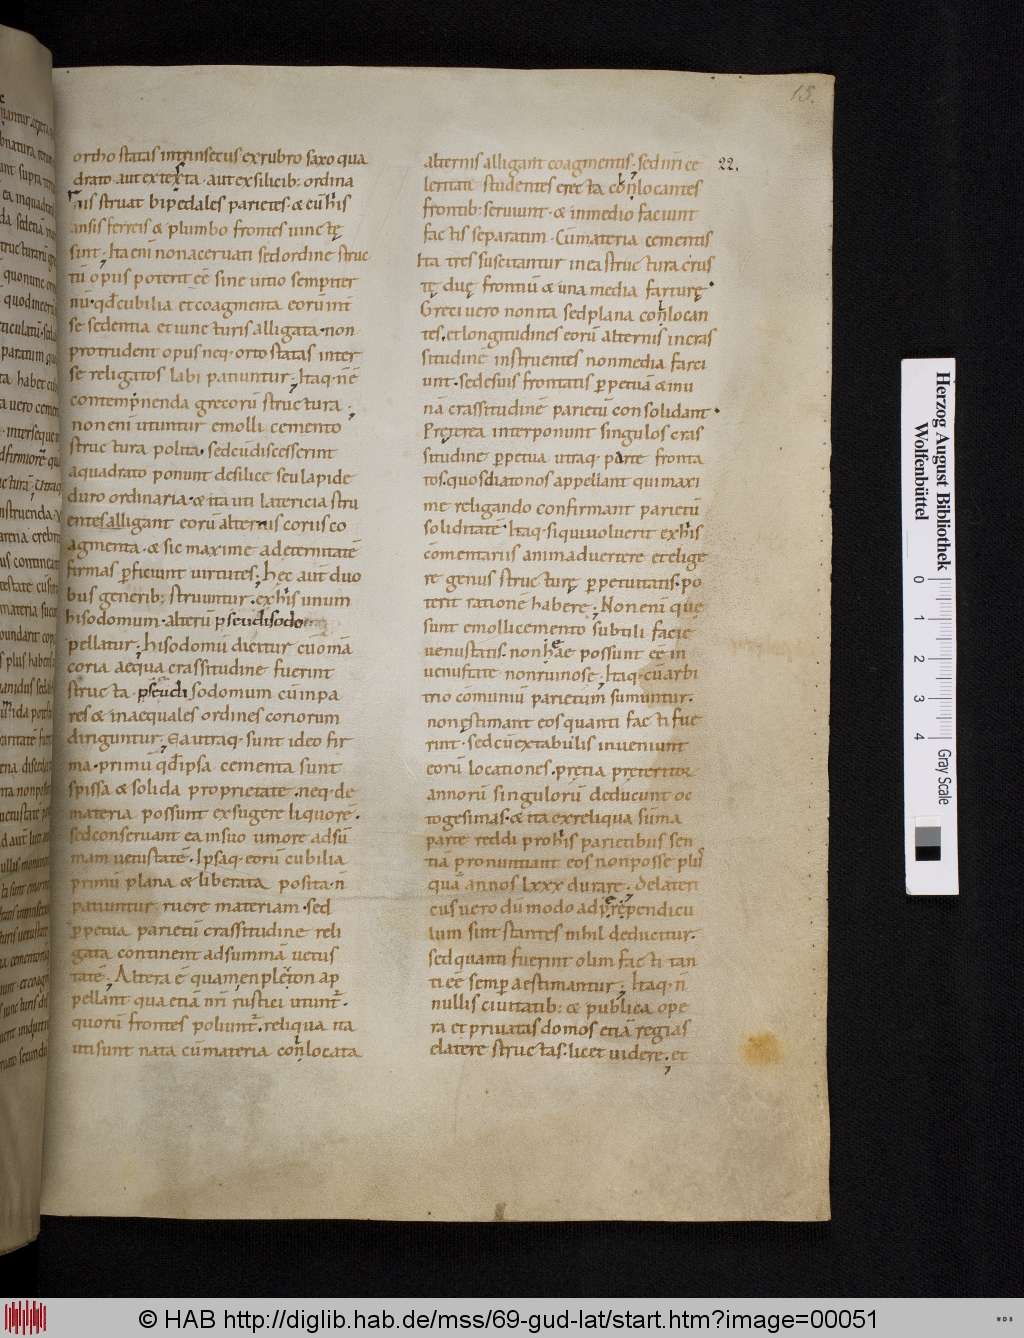 15.
orthostatas intrinsecus ex rubro saxo qua
drato aut ex texta · aut ex silicib; ordina
riis struat bipedales parietes · & cū his
ansis ferreis & plumbo frontes uinctę
sint; Ita enī non aceruati sed ordine struc
tū opus poterit eē sine uitio sempiter
nū · qđ cubilia et coagmenta eorū int̄
se sedentia et iuncturis alligata · non
protrudent opus neq · ortostatas inter
se religatos labi patiuntur; Itaq · n̄ ē
contemnenda grecorū structura;
non enī utuntur e molli cemento
structura polita · sed cū discesserint
a quadrato ponunt de silice seu lapide
duro ordinaria · & ita uti latericia stru
entes alligant eorū alternis coriis co
agmenta · & sic maxime ad eternitatē
firmas ꝑficiunt uirtutes; hęc aūt duo
bus generib; struuntur · ex his unum
hisodomum · alterū pseudisodo
pellatur; hisodomū dicitur cū om̄a
coria aequa crassitudine fuerint
structa · pseudisodomum cū inpa
res & inaequales ordines coriorum
diriguntur; Ea utraq · sunt ideo fir
ma · primū qđ ipsa cementa sunt
spissa & solida proprietate · neq · de
materia possunt exsugere liquorē ·
sed conseruant ea in suo umore ad sū
mam uetustatē · Ipsaq · eorū cubilia
primū plana & liberata posita · n̄
patiuntur ruere materiam · sed
ꝑpetua parietū crassitudine reli
gata continent ad summā uetus
tatē; Altera ē quam enplecton ap
pellant qua etiā nr̄i rustici utunt̄ ·
quorū frontes poliunt̄ · reliqua ita
uti sunt nata cū materia conlocata
alternis alligant coagmentis; sed nr̄i ce
22.
leritati studentes erecta conlocantes
frontib: seruiunt · & in medio faciunt
factis separatim · Cū materia cementis
Ita tres suscitantur in ea structura crus
tę duę frontiū & una media farturę ·
Greci uero non ita sed plana conlocan
tes · et longitudines eorū alternis in cras
situdinē instruentes non media farci
unt · sed e suis frontatis ꝑpetuā & inu
nā crassitudinē parietū consolidant ·
Pręterea interponunt singulos cras
situdine ꝑpetua utraq · parte fronta
tos · quos diatonos appellant qui maxi
me religando confirmant parietū
soliditatē · Itaq · si qui uoluerit ex his
cōmentariis animaduertere et elige
re genus structurę ꝑpetuitatis · po
terit rationē habere; Non enī quę
sunt e molli cemento subtili facie
uenustatis · non hae possunt eē in
uenustate non ruinose; Itaq · cū arbi
trio cōmuniū parietum sumuntur ·
non ęstimant eos quanti facti fue
rint · sed cū ex tabulis inueniunt
eorū locationes · pretia preteritor
annorū singulorū deducunt oc
togesimas · & ita ex reliqua sūma
parte reddi pro his parietibus sen
tiā pronuntiant eos non posse plus
quā annos lxxx durare; de lateri
cus uero dū modo ad perpendicu
lum sint stantes nihil deducitur ·
sed quanti fuerint olim facti tan
ti eē semꝑ aestimantur; Itaq · n̄
nullis ciuitatib: & publica ope
ra et priuatas domos etiā regias
e latere structas · licet uidere; et
Herzog August Bibliothek
Wolfenbüttel
0 1 2 3 4
Gray Scale
© HAB http://diglib.hab.de/mss/69-gud-lat/start.htm?image=00051